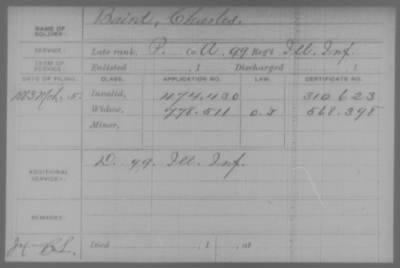 NAME OF SOLDIER: Baird, Charles.
SERVICE: Late rank, P. Co. A, 99 Reg't Ill. Inf.
TERM OF SERVICE: Enlisted , 1 Discharged , 1
DATE OF FILING. CLASS. APPLICATION NO. LAW. CERTIFICATE NO.
1883 Mch. 5. Invalid, 474.430 310.623
Widow, 778.511 568.398
Minor,
ADDITIONAL SERVICE: D. 99. Ill. Inf.
REMARKS:
Died , 1 , at